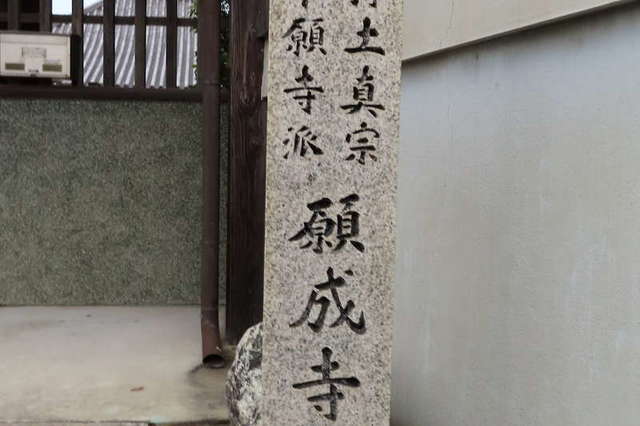 土真宗
願寺派
願成寺